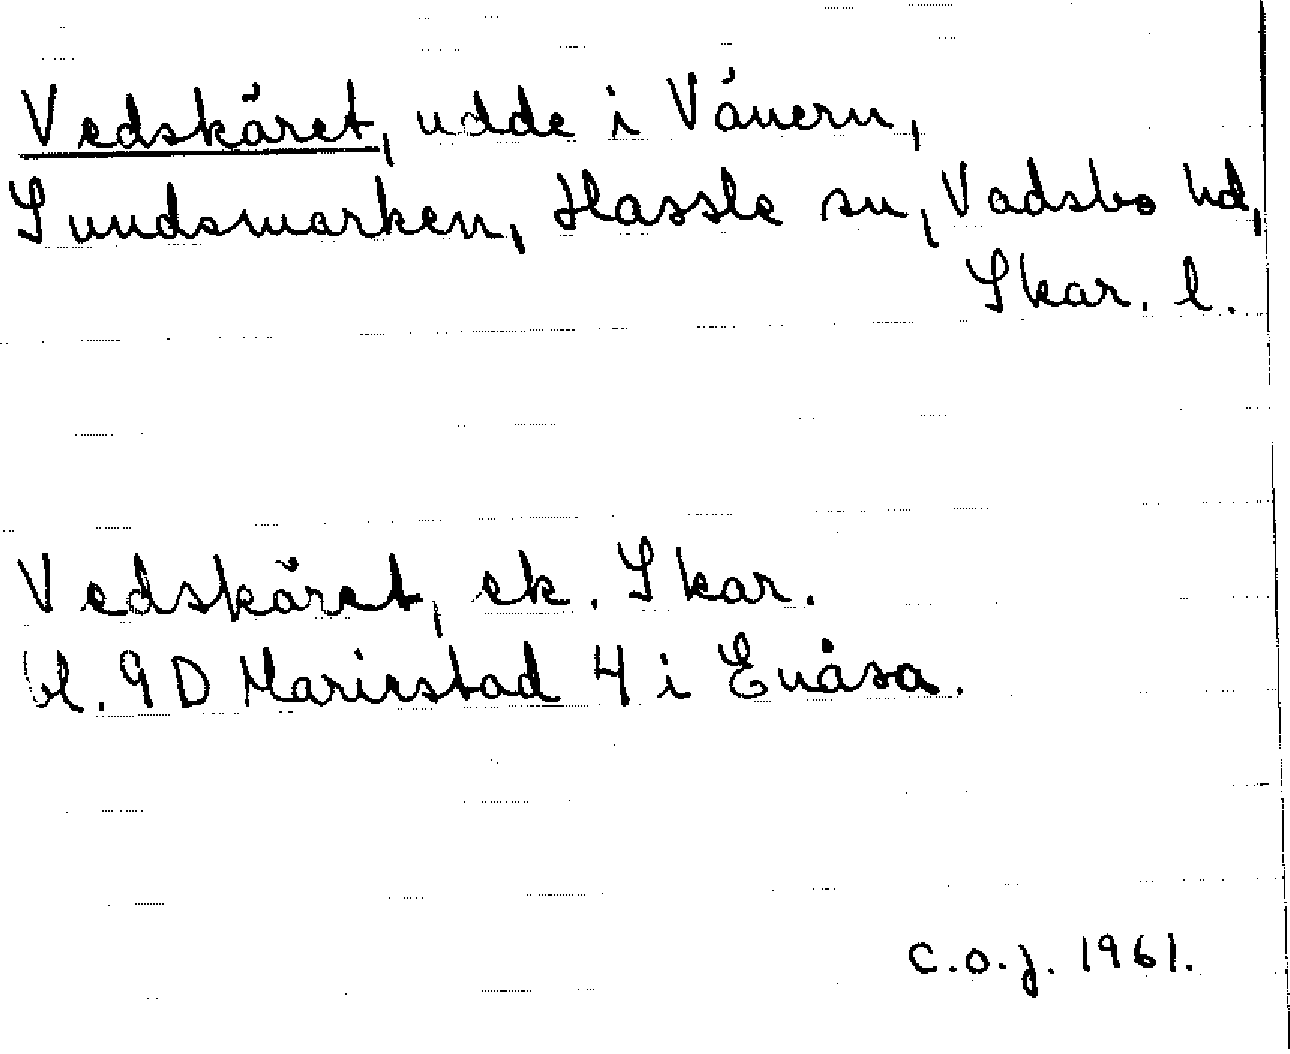 Vedskäret, udde i Vänern,
Sundsmarken, Hassle sn, Vadsbo hd,
Skar. l.
Vedskäret, ek. Skar.
bl. 9D Mariestad 4 i Enåsa.
C.O.J. 1961.